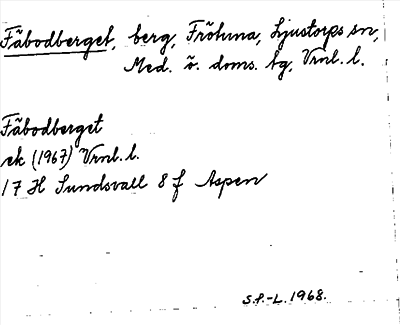 Fäbodberget, berg, Fröhuna, Ljustorps sn,
Med. ö. doms. tg, Vrnl. l.
Fäbodberget
ek (1967) Vrnl. l.
17 H Sundsvall 8 f Aspen
S.F.-L. 1968.